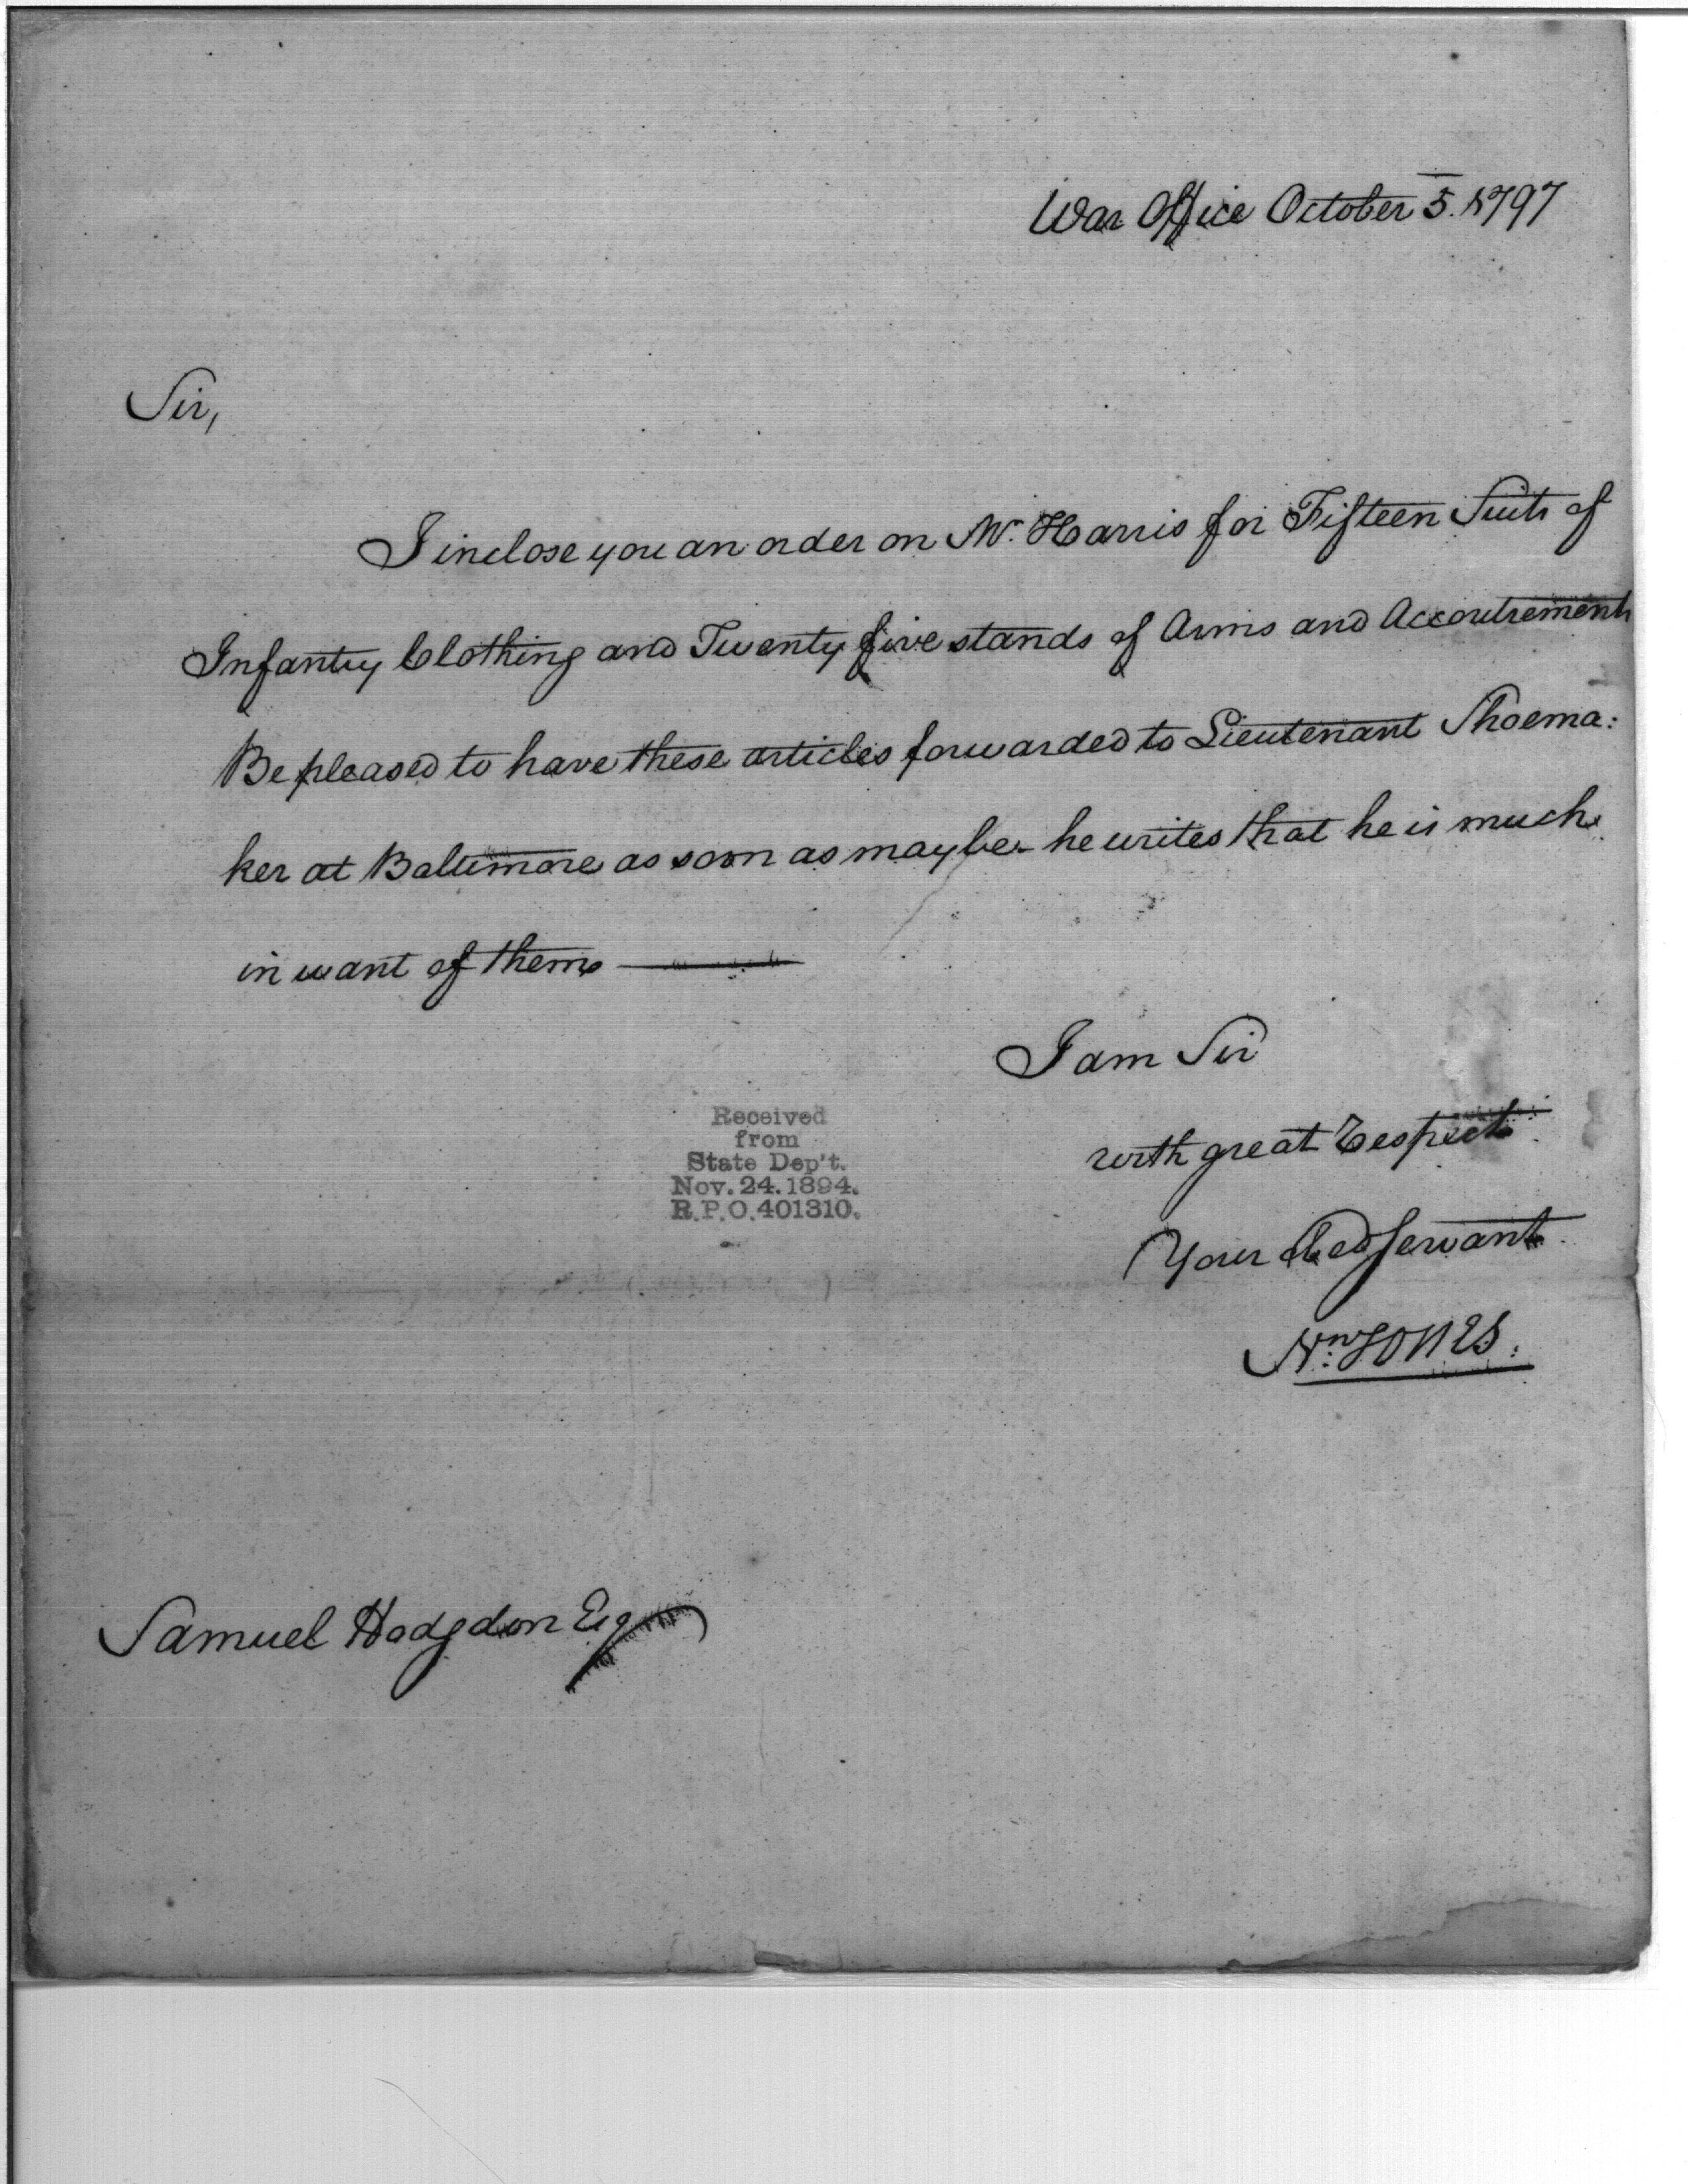 War Office October 5. 1797
Sir,
I inclose you an order on Mr. Harris for Fifteen Suits of
Infantry Clothing and Twenty five stands of Arms and Accoutrements
Be pleased to have these articles forwarded to Lieutenant Shoema:
ker at Baltimore as soon as may be - he writes that he is much
in want of them
I am Sir
with great respect
Your Obed Servant
Wm Jones.
Received
from
State Dep't.
Nov. 24. 1894.
R.P.O. 401310.
Samuel Hodgdon Esq